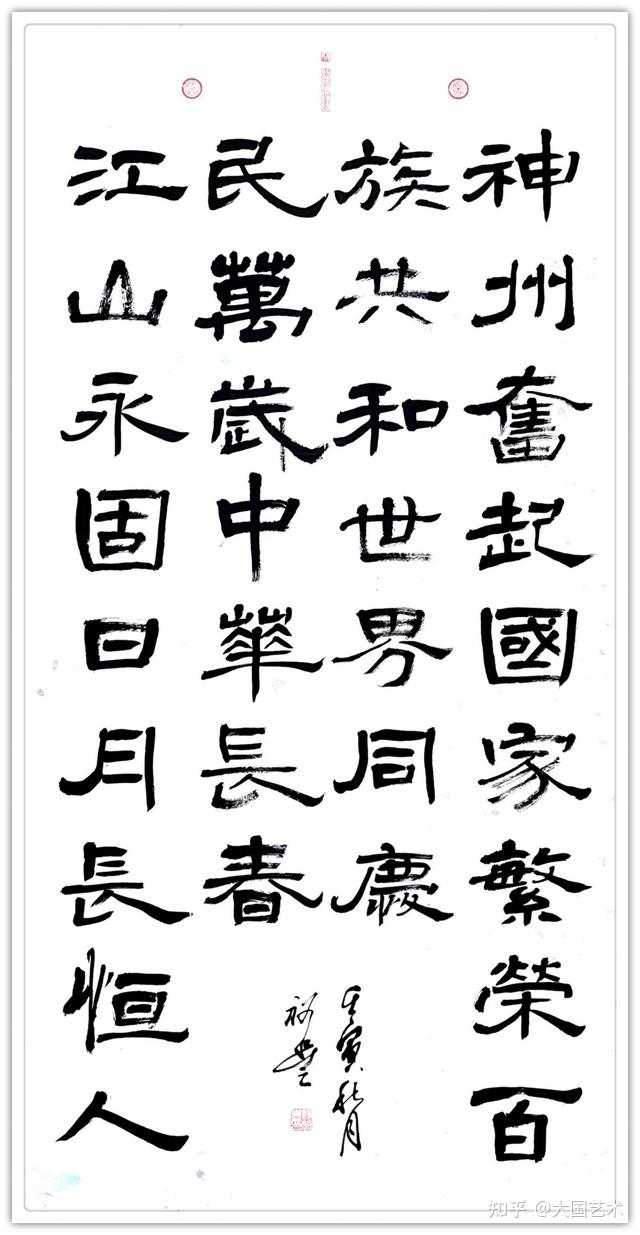 神州奮起國家繁榮百
族共和世界同慶
江山永固日月長恒人
民萬歲中華長春
壬寅秋月
知乎 @大国艺术